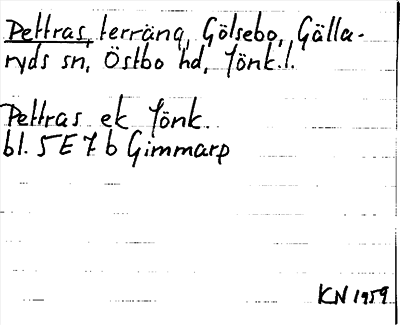 Pettras, terräng, Gölsebo, Gälla-
ryds sn, Östbo hd, Jönk.l.
Pettras ek Jönk.
bl. 5E 7b Gimmarp
KN 1959